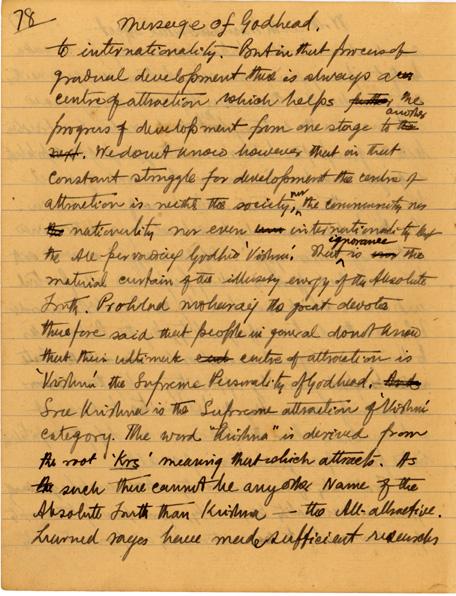 78
Message of Godhead.
to internationality. But in that process of
gradual development there is always a
centre of attraction which helps further the
progress of development from one stage to the another
next. We do not know however that in that
constant struggle for development the centre of
attraction is neither the society, nor the community nor
the nationality nor even internationality but
the All-pervading Godhead 'Vishnu'. That ignorance is the
material curtain of the illusory energy of the Absolute
Truth. Prohlad Moharaj the great devotee
therefore said that people in general do not know
that their ultimate end centre of attraction is
'Vishnu' the Supreme Personality of Godhead. And
Sree Krishna is the Supreme attraction of 'Vishnu'
category. The word "Krishna" is derived from
the root 'Krs' meaning that which attracts. As
such there cannot be any other Name of the
Absolute Truth than Krishna — the All-attractive.
Learned sages have made sufficient researches